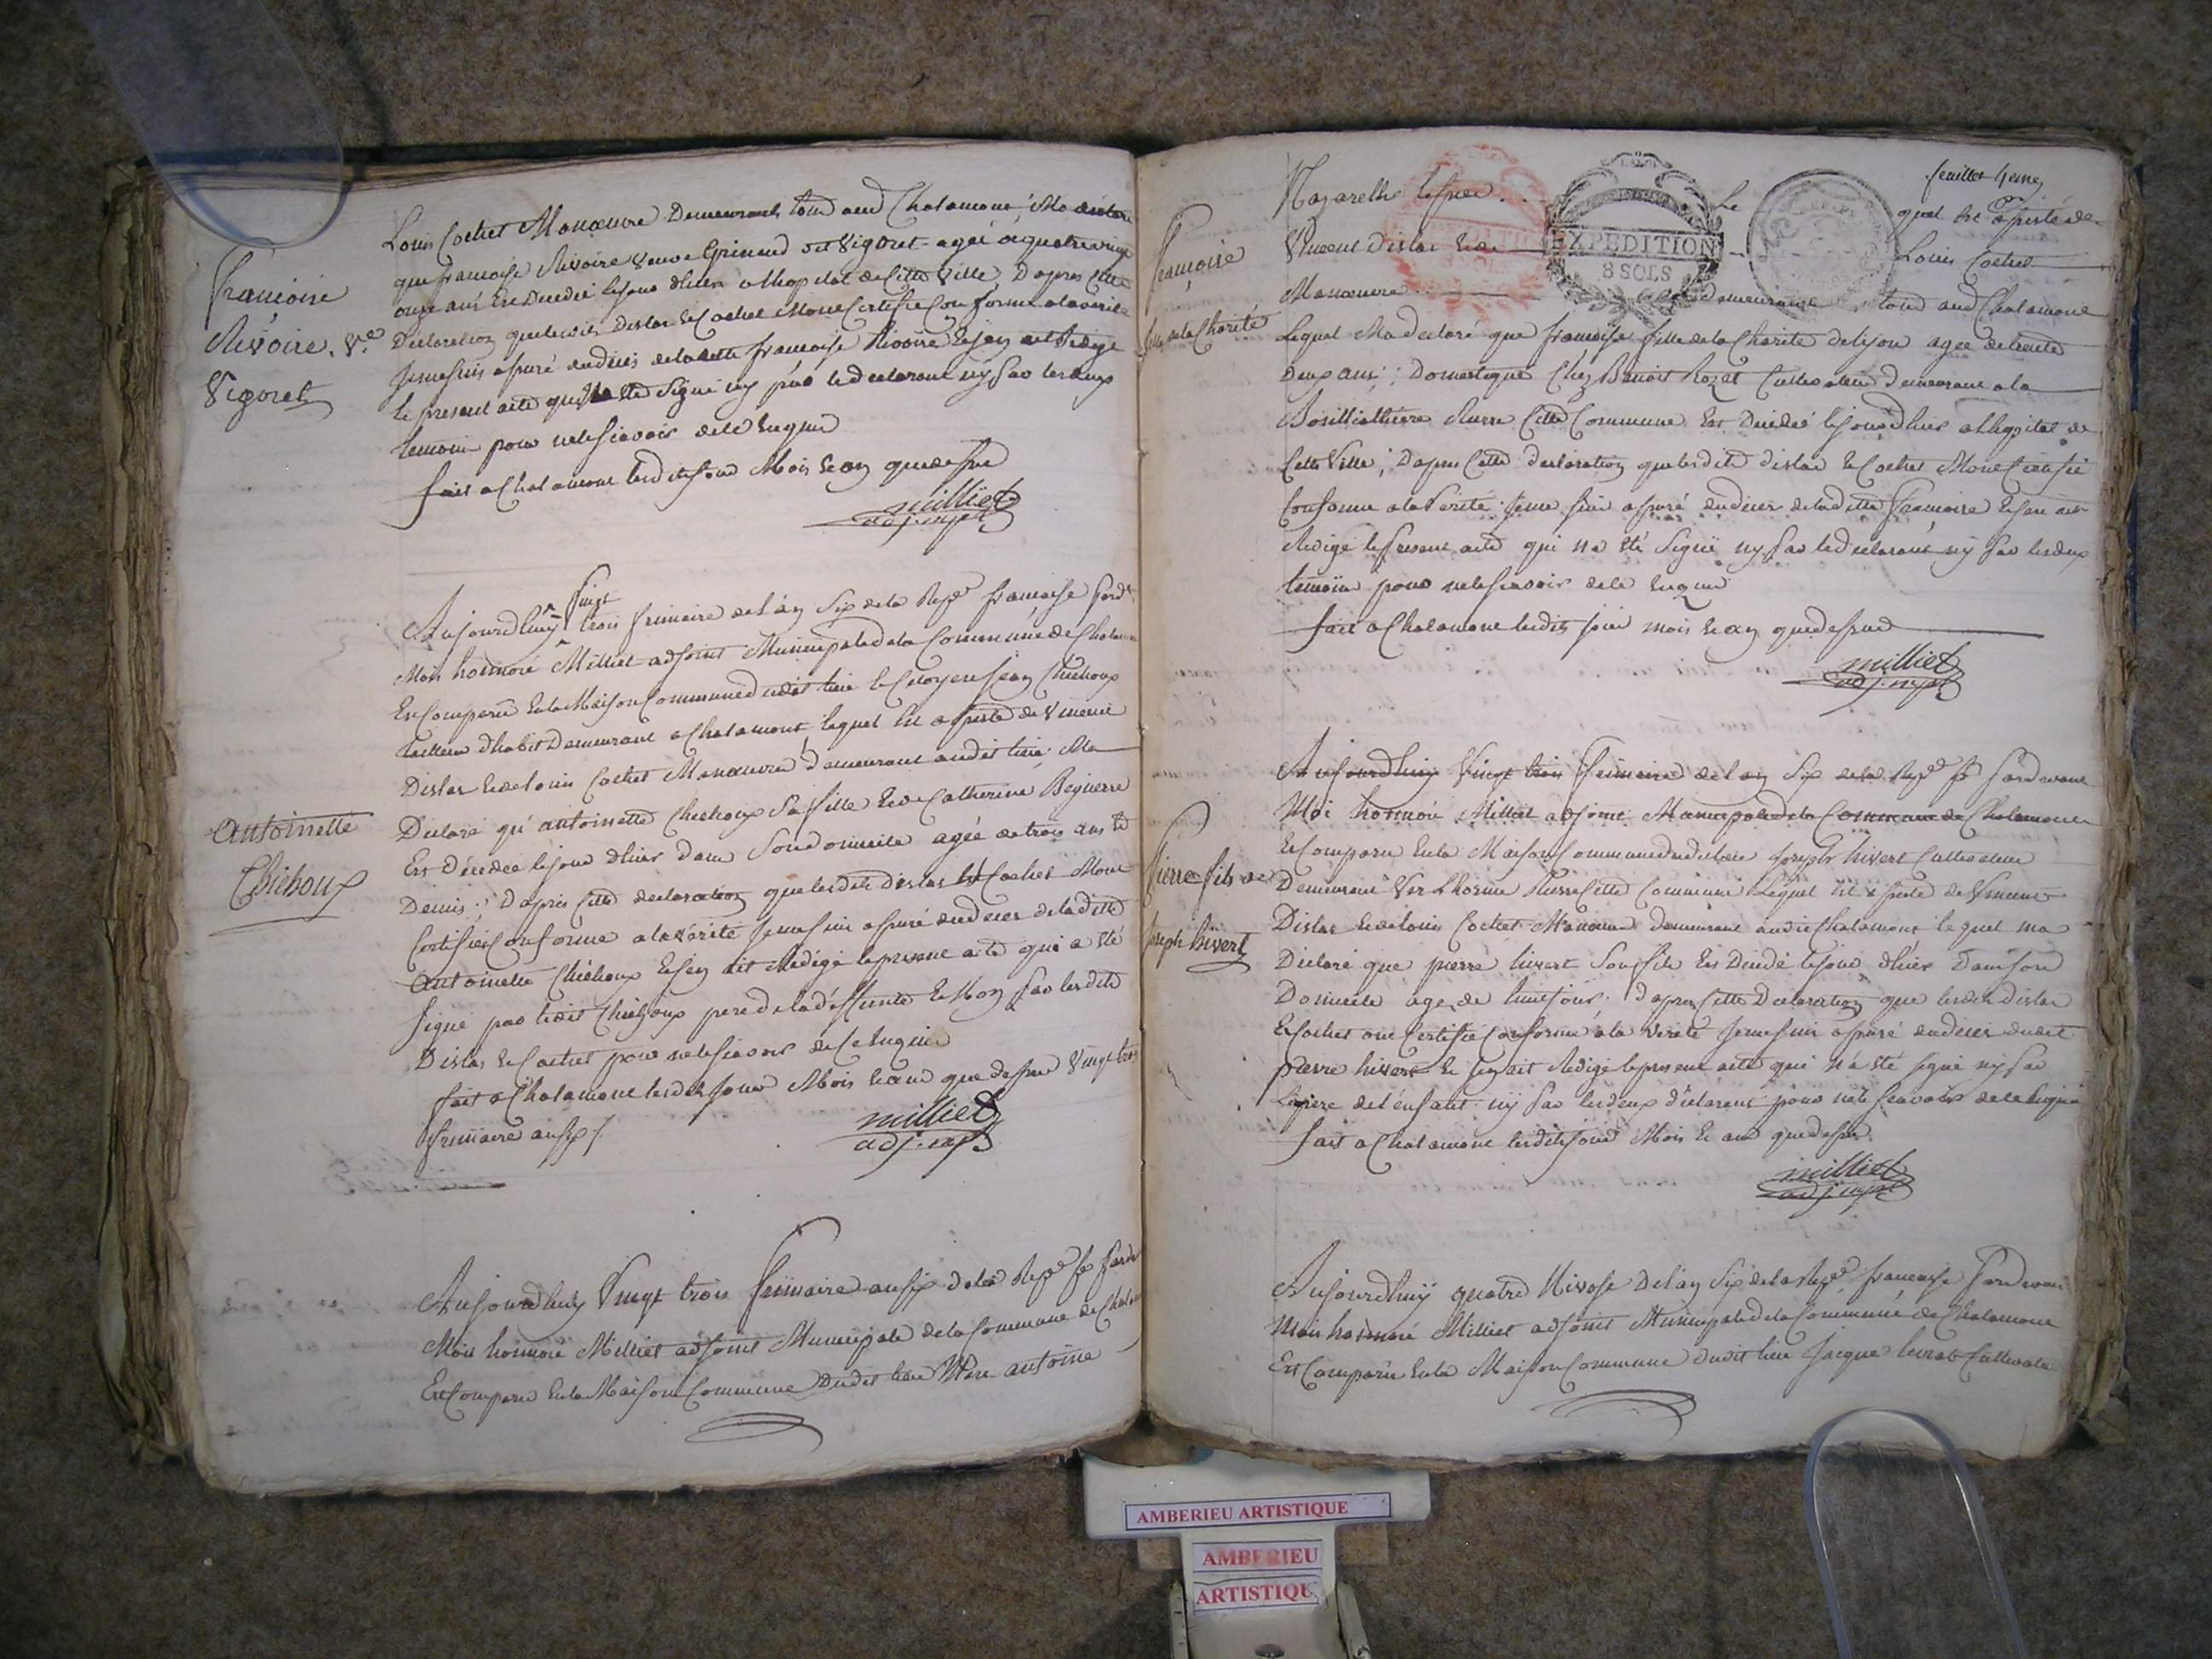 Louis Cochet Manoeuvre Demeurants tous aud Chalamont, Ma declaré
que francoise Rivoire veuve Grimaud dit Vigoret agée de quatre vingt
onze ans Est Decedée le jour dhier a lhopital de Cette Ville, Dapres Cette
Declaration que lesdits Dislas & Cochet Mont Certifié Conforme a la verité
Je me suis assuré du deces de la ditte francoise Rivoire & Jen ait Redigé
le present acte qui Na Eté Signé ny par le declarant ny par les deux
temoin pour ne le scavoir de ce Enquis
fait a Chalamont lesdits jour Mois & an que dessus
milliet
adj. mpal
françoise
Rivoire. Ve
Vigoret
Aujourdhuy Vingt trois frimaire de l'an Six de la Repe francaise pard
Moi honnoré Milliet adjoint Municipale de la Commune de Chalam
Est Comparu En la Maison Commune dudit lieu le Citoyen Jean Chichoux
tailleur dhabit Demeurant a Chalamont, lequel Est assisté de Vincent
Dislas & de Louis Cochet Manoeuvre demeurant audit lieu, Ma
Declaré qu'antoinette Chichoux Sa fille & de Catherine Beguerre
Est Décédée le jour dhier dans Son domicile agée de trois ans Et
Demis; D'apres Cette declaration que lesdits Dislas & Cochet Mont
Certifié Conforme a la vérité Je me suis assuré du deces de la ditte
Antoinette Chichoux & Jen ait Redigé le present acte qui a Eté
Signé par ledit Chichoux pere de la déffunte & Non par lesdits
Dislas & Cochet pour ne le scavoir de Ce Enquis
fait a Chalamont lesdits jour Mois & an que dessus Vingt trois
frimaire an six /.
milliet
adj. mpl
Antoinette
Chichoux
Aujourdhuy Vingt trois frimaire an six de la Repe fse pard
Moi honnoré Milliet adjoint Municipale de la Commune de Chala
Est Comparu En la Maison Commune Dudit lieu Mre antoine
feuillet 4eme
Nazareth Le
quel Est assisté de
Vincent Dislas & de Louis Cochet
Manoeuvre demeurant tous aud Chalamont
EXPEDITION
8 SOLS
Lequel Ma declaré que françoise fille de la Charité de lyon agée de trente
Deux ans; Domestique Chez Benoit Rozet Cultivateur demeurant a la
Bouilliattiere Riere Cette Commune Est Décédée le jour dhier a lhopital de
Cette Ville; Dapres Cette declaration que lesdits dislas & Cochet Mont Certifié
Conforme a la Verité Je me suis assuré du deces de la ditte françoise & Jen ait
Redigé le present acte qui Na Eté Signé ny par le declarant ny par les deux
temoin pour ne le scavoir de ce Enquis
fait a Chalamont lesdits jour mois & an que dessus
milliet
adj. mpal
françoise
fille de la Charité
Aujourdhuy Vingt trois frimaire de l an Six de la Repe fse pardevant
Moi honnoré Milliet adjoint Municipale de la Commune de Chalamont
Est Comparu En la Maison Commune dudit lieu Joseph hivert Cultivateur
Demeurant Riere Cette Commune Lequel Est assisté de Vincent
Dislas & de Louis Cochet Manoeuvre demeurant audit Chalamont lequel ma
Déclaré que pierre hivert Son fils Est Decedé le jour dhier dans son
Domicile agé de huit jour; D'apres Cette Declaration que lesdits dislas
& Cochet ont Certifié Conforme a la Verité Je me suis assuré du deces dudit
pierre hivert & Jen ait Redigé le present acte qui n'a Eté signé ny par
le pere de l'enfant ny par les deux déclarent pour ne le scavoir de ce Enquis
fait a Chalamont lesdits jour Mois & an que dessus.
milliet
adj mpal
Pierre fils de
Joseph hivert
Aujourdhuy quatre Nivose De l an Six de la Repe francaise pardevant
Moi honnoré Milliet adjoint Municipale de la Commune de Chalamont
Est Comparu En la Maison Commune dudit lieu Jacque livrat Cultivate
AMBERIEU ARTISTIQUE
AMBERIEU
ARTISTIQU